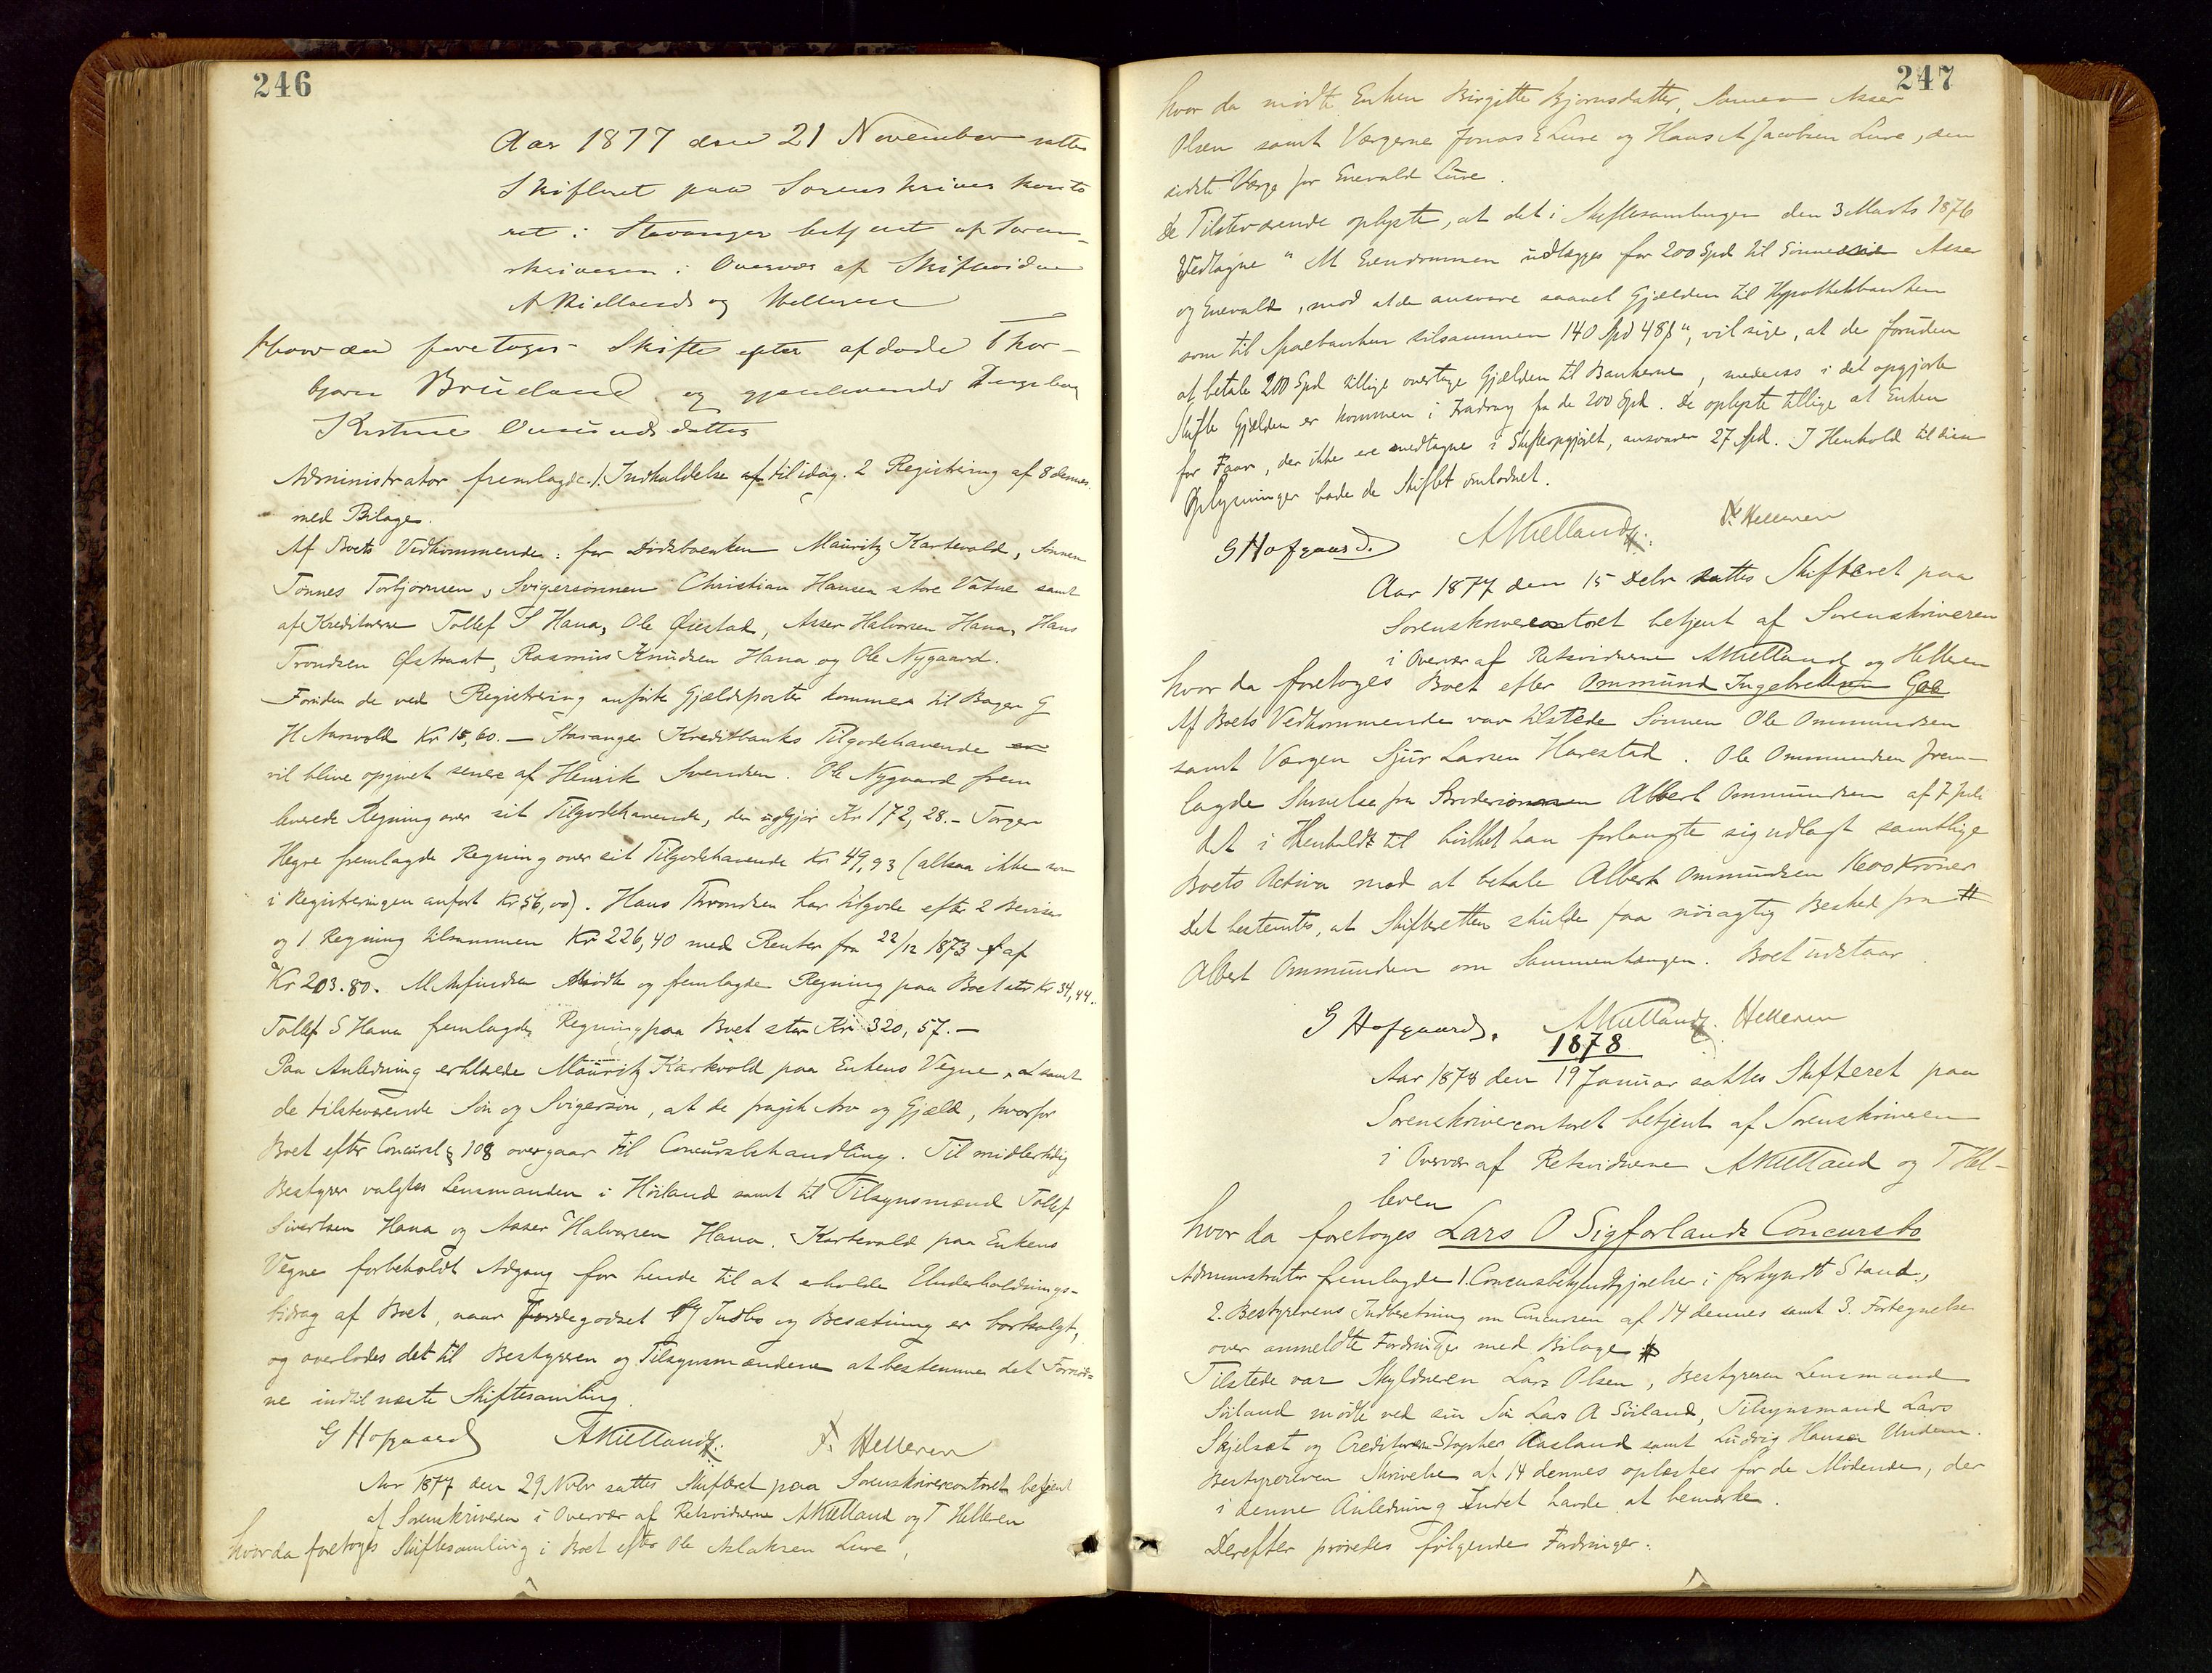 246
Aar 1877 den 21 November sattes
Skifteret paa Sorenskriverkonto
ret i Stavanger betjent af Soren-
skriveren i Overvær af Skiftevidne
A Kielland og Helleren
Hvor da foretoges Skifte efter afdøde Thor-
bjørn Brueland og gjenlevende Ingeborg
Kistine Omundsdatter
Administrator fremlagde 1. Indkaldelse af til idag. 2 Registrering af 8 dennes
med Bilage.
Af Boets Vedkommende: for Dødsboenken Mauritz Kartevold, Sønnen
Tønnes Torbjørnsen, Svigersønnen Christian Hansen store Vatne samt
af Kreditorerne Tollef S Hana, Ole Øiestad, Asser Halvorsen Hana, Hans
Trondsen Østraat, Rasmus Knudsen Hana og Ole Nygaard.
Foruden de ved Registrering anførte Gjældsposter kommer til Bager G
H Aarsvold Kr 15,60. — Stavanger Kreditbanks Tilgodehavende
vil blive opgivet senere af Henrik Svendsen. Ole Nygaard frem
leverede Regning over sit Tilgodehavende, der udgjør Kr 172,28. - Torger
Hegre fremlagde Regning over sit Tilgodehavende Kr 49,93 (altsaa ikke som
i Registreringen anført Kr 56,00). Hans Throndsen har tilgode efter 2 Beviser
og 1 Regning tilsammen Kr 226,40 med Renter fra 22/12 1873 af
Kr 203.80. M Asfindsen mødte og fremlagde Regning paa Boet stor Kr 34,44.
Tollef S Hana fremlagde Regning paa Boet stor Kr 320,57. —
Paa Anledning erklærede Mauritz Kartevold paa Enkens Vegne, samt
de tilstedeværende Søn og Svigersøn, at de fragik Arv og Gjæld, hvorfor
Boet efter Concursl § 108 overgaar til Concursbehandling. Til midlertidig
Bestyrer valgtes Lensmanden i Høiland samt til Tilsynsmænd Tollef
Sivertsen Hana og Asser Halvorsen Hana. Kartevold paa Enkens
Vegne forbeholdt Adgang for hende til at erholde Underholdnings-
bidrag af Boet, naar Jordegodset og Indbo og Besætning er bortsolgt,
og overlodes det til Bestyreren og Tilsynsmændene at bestemme det Fornød-
ne indtil næste Skiftesamling.
G Hofgaard AKielland T. Helleren
Aar 1877 den 29 Novbr sattes Skifteret paa Sorenskrivercontoret betjent
af Sorenskriveren i Overvær af Retsvidnerne AKielland og T Helleren
hvor da foretoges Skiftesamling i Boet efter Ole Aslaksen Lure,
247
hvor da mødte Enken Birgitte Bjørnsdatter, Sønnen Asser
Olsen samt Værgerne Jonas E Lure og Hans A Jacobsen Lure, den
sidste Værge for Enevald Lure.
De Tilstedværende oplyste, at det i Skiftesamlingen den 3 Marts 1876
Vedtagne "at Eiendommen udlægges for 200 Spd til Sønnerne Asser
og Enevald, mod at de ansvare saavel Gjælden til Hypothekbanken
som til Sparebanken tilsammen 140 Spd 48ß", vil sige, at de foruden
at betale 200 Spd tillige overtage Gjælden til Bankerne, medens i det opgjorte
Skifte Gjælden er kommen i Fradrag fra de 200 Spd. De oplyste tillige at Enken
for Faar, der ikke ere medtagne i Skifteopgjøret, ansvarer 27 Spd. I Henhold til disse
Oplysninger bade de Skiftet omlodnet.
G Hofgaard. AKielland T. Helleren
Aar 1877 den 15 Debr sattes Skifteret paa
Sorenskrivercontoret betjent af Sorenskriveren
i Overvær af Retsvidnerne AKielland og Helleren
hvor da foretoges Boet efter Ommund Ingebretsen
Af Boets Vedkommende var tilstede Sønnen Ole Ommundsen
samt Værgen Sjur Larsen Harestad. Ole Ommundsen frem-
lagde Skrivelse fra Albert Ommundsen af 7 Juli
det i Henhold til hvilket han forlangte sig udlagt samtlige
Boets Activa mod at betale Albert Ommundsen 1600 Kroner
Det bestemtes, at Skifteretten skulde faa nøiagtig Besked fra
Albert Ommundsen om Sammenhængen. Boet udstaar.
G Hofgaard. AKielland. Helleren
1878
Aar 1878 den 19 Januar sattes Skifteret paa
Sorenskrivercontoret betjent af Sorenskriveren
i Overvær af Retsvidnerne AKielland og T Hel-
leren
hvor da foretoges Lars O Sigforlands Concursbo
Administrator fremlagde 1. Concursbekjendtgjørelser i forkyndt Stand,
2. Bestyrerens Indberetning om Concursen af 14 dennes samt 3. Fortegnelse
over anmeldte Fordringer med Bilage
Tilstede var Skyldneren Lars Olsen, Bestyreren Lensmand
Søiland mødte ved sin Søn Lars A Søiland, Tilsynsmand Lars
Skjelsæt og Creditorerne Stopher Aasland samt Ludvig Hansen Undem.
Bestyrerens Skrivelse af 14 dennes oplæstes for de Mødende, der
i denne Anledning Intet havde at bemærke.
Derefter prøvedes følgende Fordringer: